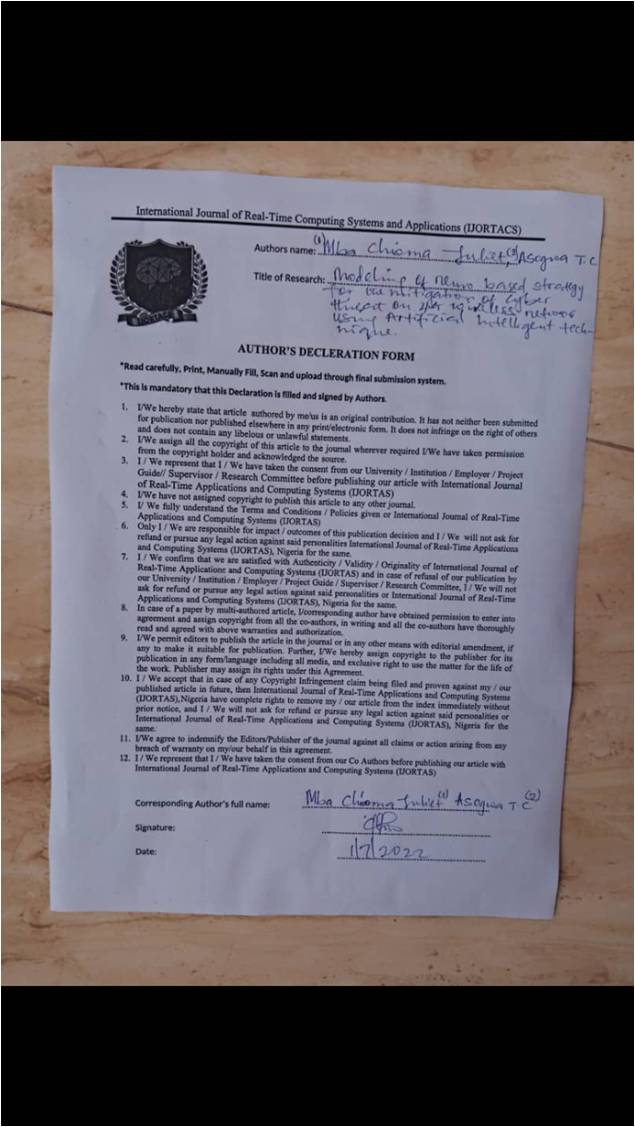 International Journal of Real-Time Computing Systems and Applications (IJORTACS)
Authors name: (1) Mba Chioma Juliet, (2) Asogwa T.C
Title of Research: Modeling of neuro based strategy
for the mitigation of cyber
threat on wireless network
using Artificial Intelligent tech-
nique.
IJORTAS
AUTHOR'S DECLERATION FORM
*Read carefully, Print, Manually Fill, Scan and upload through final submission system.
*This is mandatory that this Declaration is filled and signed by Authors.
1. I/We hereby state that article authored by me/us is an original contribution. It has not neither been submitted
for publication nor published elsewhere in any print/electronic form. It does not infringe on the right of others
and does not contain any libelous or unlawful statements.
2. I/We assign all the copyright of this article to the journal wherever required I/We have taken permission
from the copyright holder and acknowledged the source.
3. I / We represent that I / We have taken the consent from our University / Institution / Employer / Project
Guide// Supervisor / Research Committee before publishing our article with International Journal
of Real-Time Applications and Computing Systems (IJORTAS)
4. I/We have not assigned copyright to publish this article to any other journal.
5. I/ We fully understand the Terms and Conditions / Policies given or International Journal of Real-Time
Applications and Computing Systems (IJORTAS)
6. Only I / We are responsible for impact / outcomes of this publication decision and I / We will not ask for
refund or pursue any legal action against said personalities International Journal of Real-Time Applications
and Computing Systems (IJORTAS), Nigeria for the same.
7. I / We confirm that we are satisfied with Authenticity / Validity / Originality of International Journal of
Real-Time Applications and Computing Systems (IJORTAS) and in case of refusal of our publication by
our University / Institution / Employer / Project Guide / Supervisor / Research Committee, I / We will not
ask for refund or pursue any legal action against said personalities or International Journal of Real-Time
Applications and Computing Systems (IJORTAS), Nigeria for the same.
8. In case of a paper by multi-authored article, I/corresponding author have obtained permission to enter into
agreement and assign copyright from all the co-authors, in writing and all the co-authors have thoroughly
read and agreed with above warranties and authorization.
9. I/We permit editors to publish the article in the journal or in any other means with editorial amendment, if
any to make it suitable for publication. Further, I/We hereby assign copyright to the publisher for its
publication in any form/language including all media, and exclusive right to use the matter for the life of
the work. Publisher may assign its rights under this Agreement.
10. I / We accept that in case of any Copyright Infringement claim being filed and proven against my / our
published article in future, then International Journal of Real-Time Applications and Computing Systems
(IJORTAS),Nigeria have complete rights to remove my / our article from the index immediately without
prior notice, and I / We will not ask for refund or pursue any legal action against said personalities or
International Journal of Real-Time Applications and Computing Systems (IJORTAS), Nigeria for the
same.
11. I/We agree to indemnify the Editors/Publisher of the journal against all claims or action arising from any
breach of warranty on my/our behalf in this agreement.
12. I / We represent that I / We have taken the consent from our Co Authors before publishing our article with
International Journal of Real-Time Applications and Computing Systems (IJORTAS)
Corresponding Author's full name: Mba Chioma Juliet (1) Asogwa T C (2)
Signature:
Date: 1/7/2022